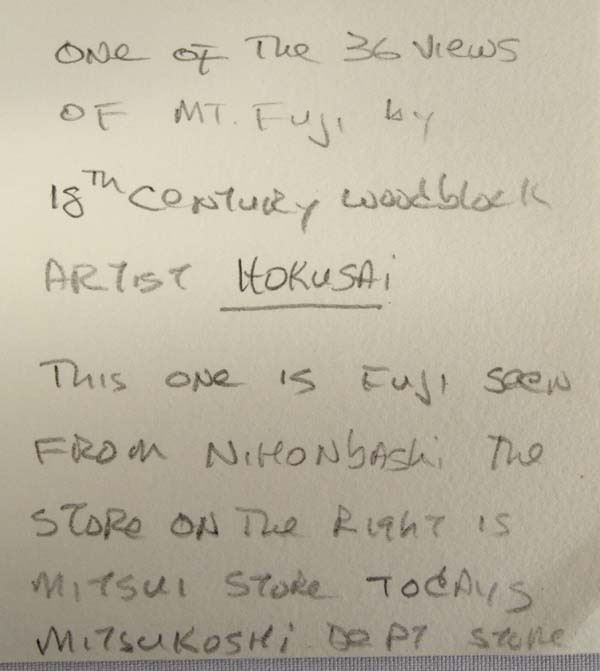 ONE OF THE 36 VIEWS
OF MT. FUJI by
18TH CENTURY woodblock
ARTIST HOKUSAI
THIS ONE IS FUJI SEEN
FROM NIHONBASHI THE
STORE ON THE RIGHT IS
MITSUI STORE TODAYS
MITSUKOSHI DEPT STORE